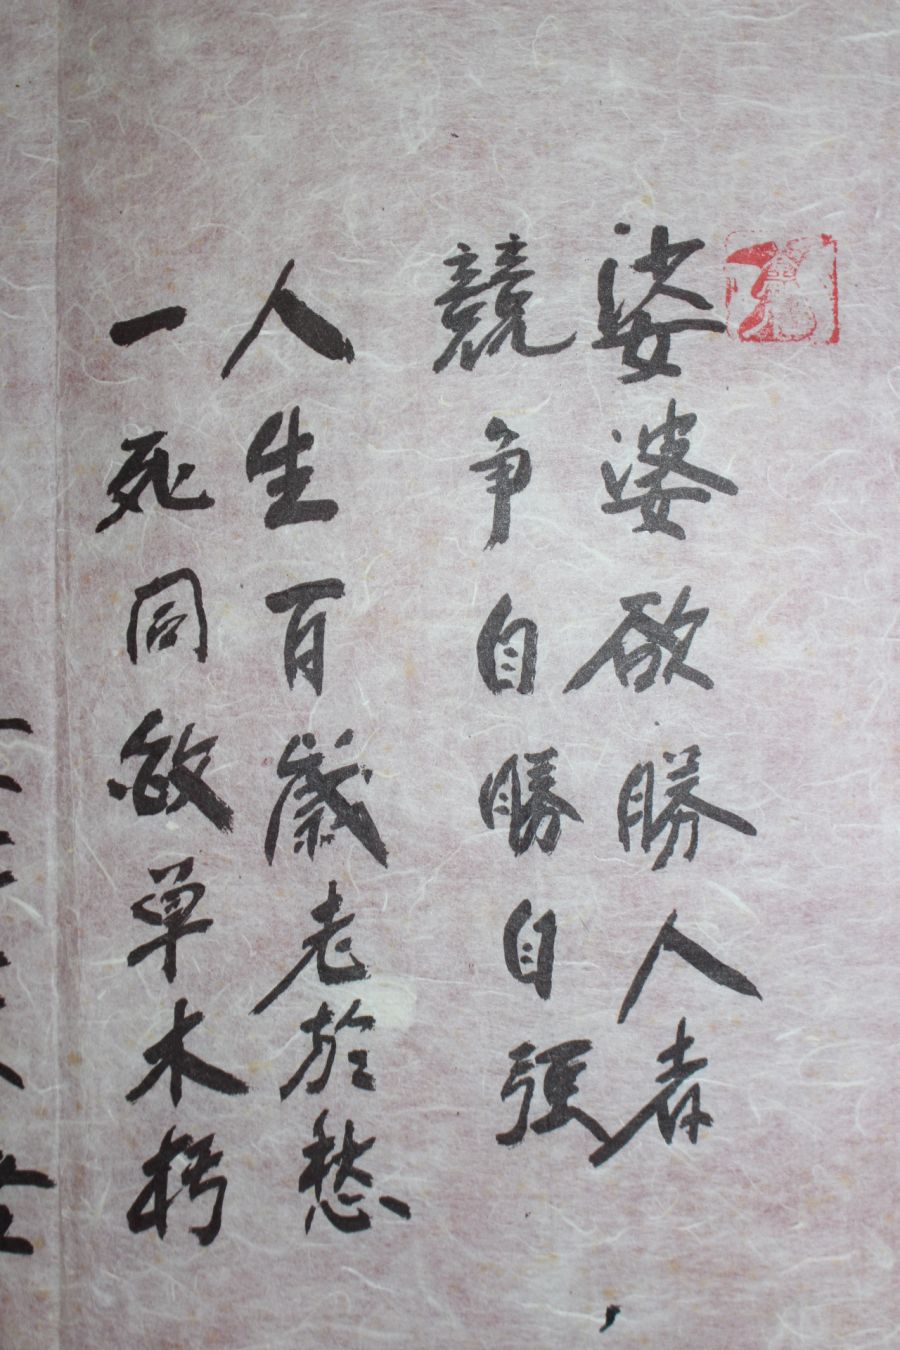 娑婆欲勝人者
競争自勝自强
人生百歲老於愁
一死同草木朽